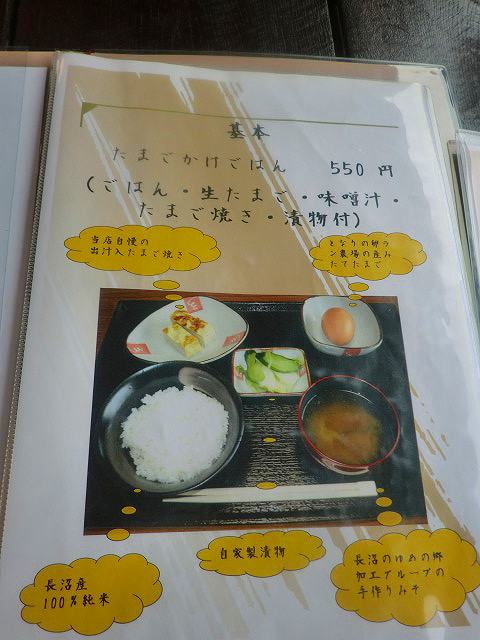 基本
たまごかけごはん 550円
(ごはん・生たまご・味噌汁・
たまご焼き・漬物付)
当店自慢の
出汁入たまご焼き
となりの卵ラ
ン農場の産み
たてたまご
自家製漬物
長沼産
100%純米
長沼のゆめの郷
加工グループの
手作りみそ